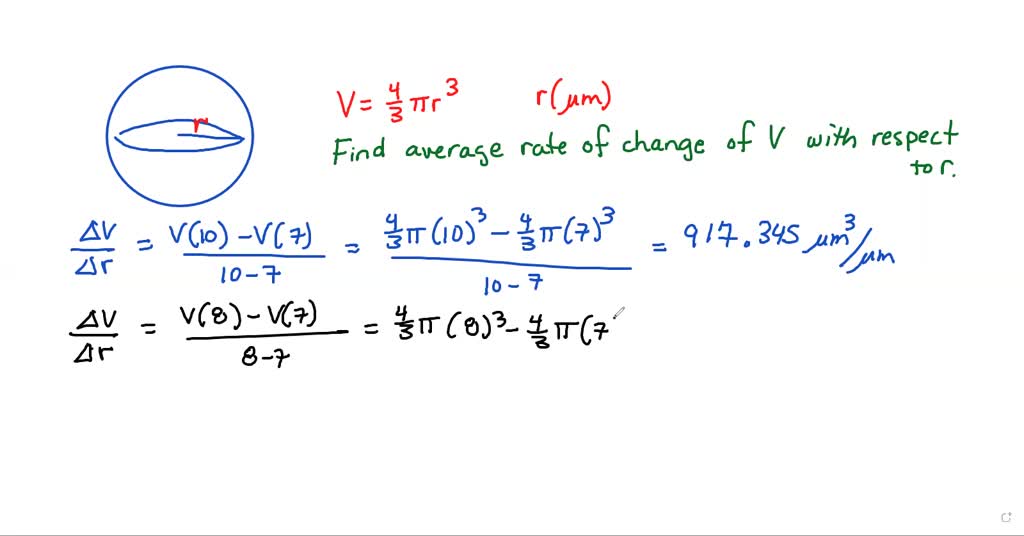 r
V = 4/3 πr³ r(μm)
Find average rate of change of V with respect
to r.
ΔV/Δr = V(10) - V(7) / 10 - 7 = 4/3 π(10)³ - 4/3 π(7)³ / 10 - 7 = 917.345 μm³/μm
ΔV/Δr = V(8) - V(7) / 8 - 7 = 4/3 π(8)³ - 4/3 π(7